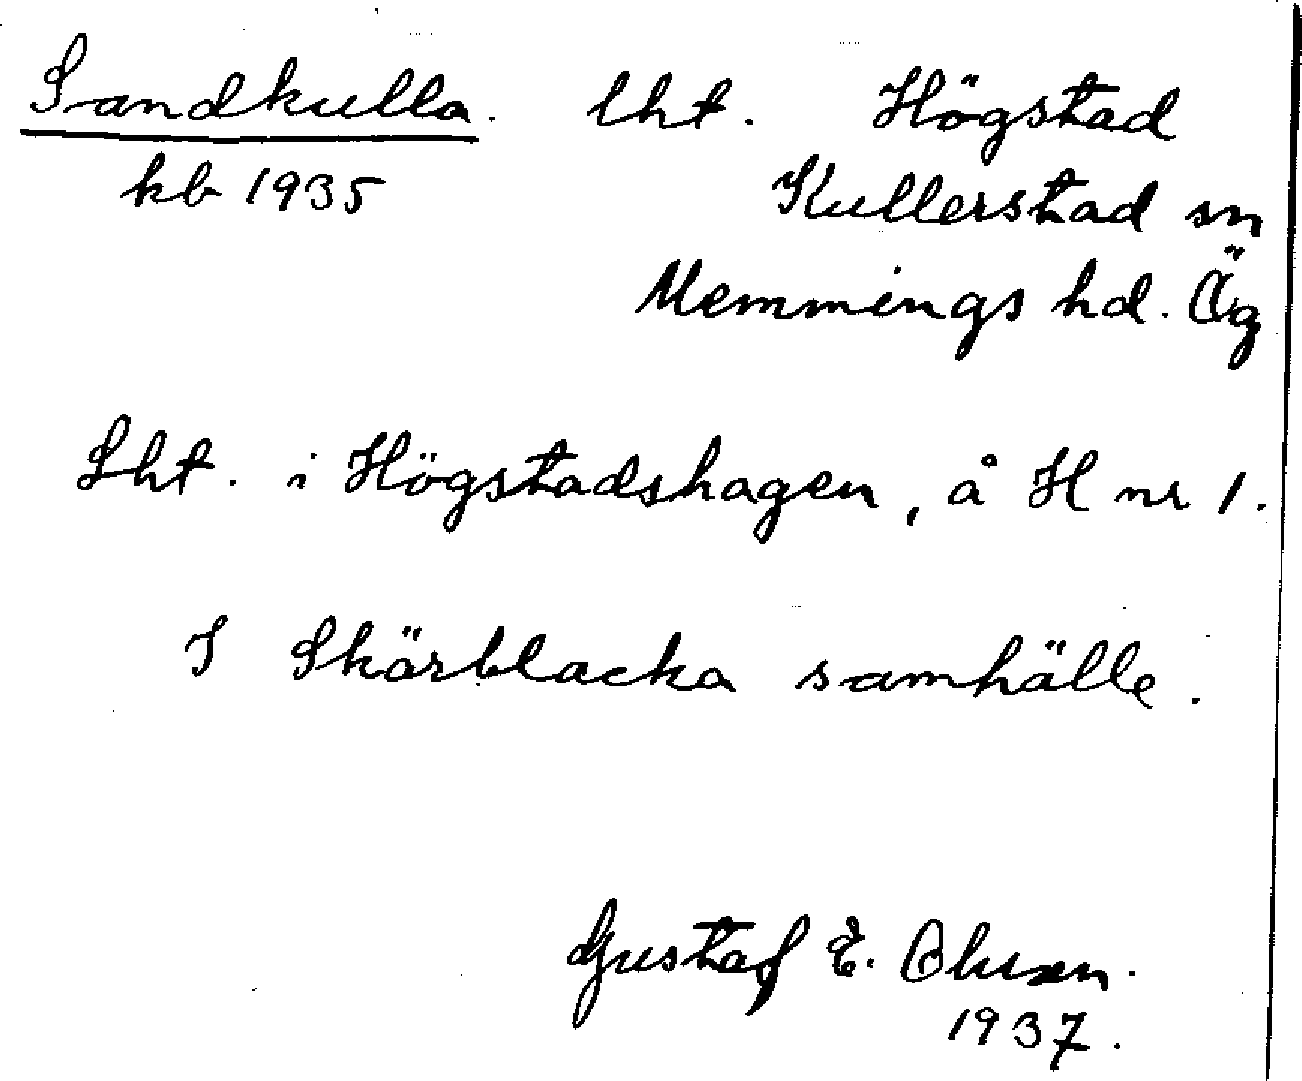 Sandkulla. lht. Högstad
kb 1935 Kullerstad sn
Memmings hd. Ög
Lht. i Högstadshagen, å H nr 1.
I Skärblacka samhälle.
Gustaf E. Olusen.
1937.